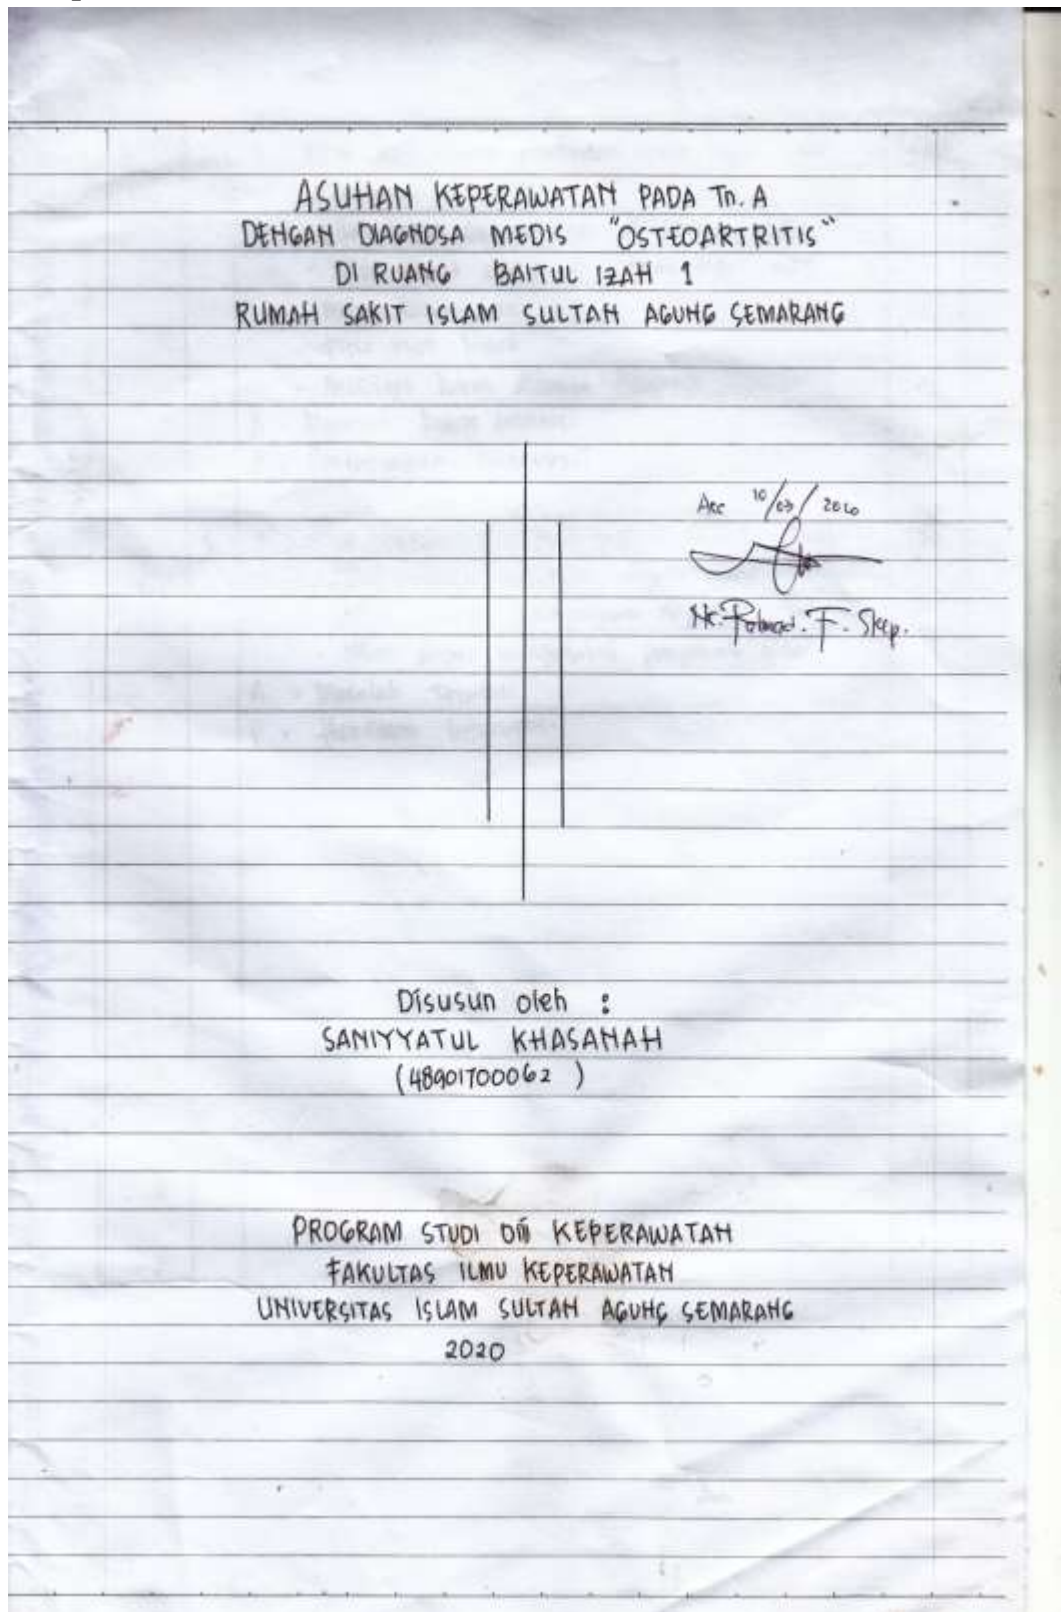 ASUHAN KEPERAWATAN PADA Tn. A
DENGAN DIAGNOSA MEDIS "OSTEOARTRITIS"
DI RUANG BAITUL IZAH 1
RUMAH SAKIT ISLAM SULTAN AGUNG SEMARANG
Acc 10/03/2020
F. Skep.
Disusun oleh :
SANIYYATUL KHASANAH
(48901700062)
PROGRAM STUDI DIII KEPERAWATAN
FAKULTAS ILMU KEPERAWATAN
UNIVERSITAS ISLAM SULTAN AGUNG SEMARANG
2020